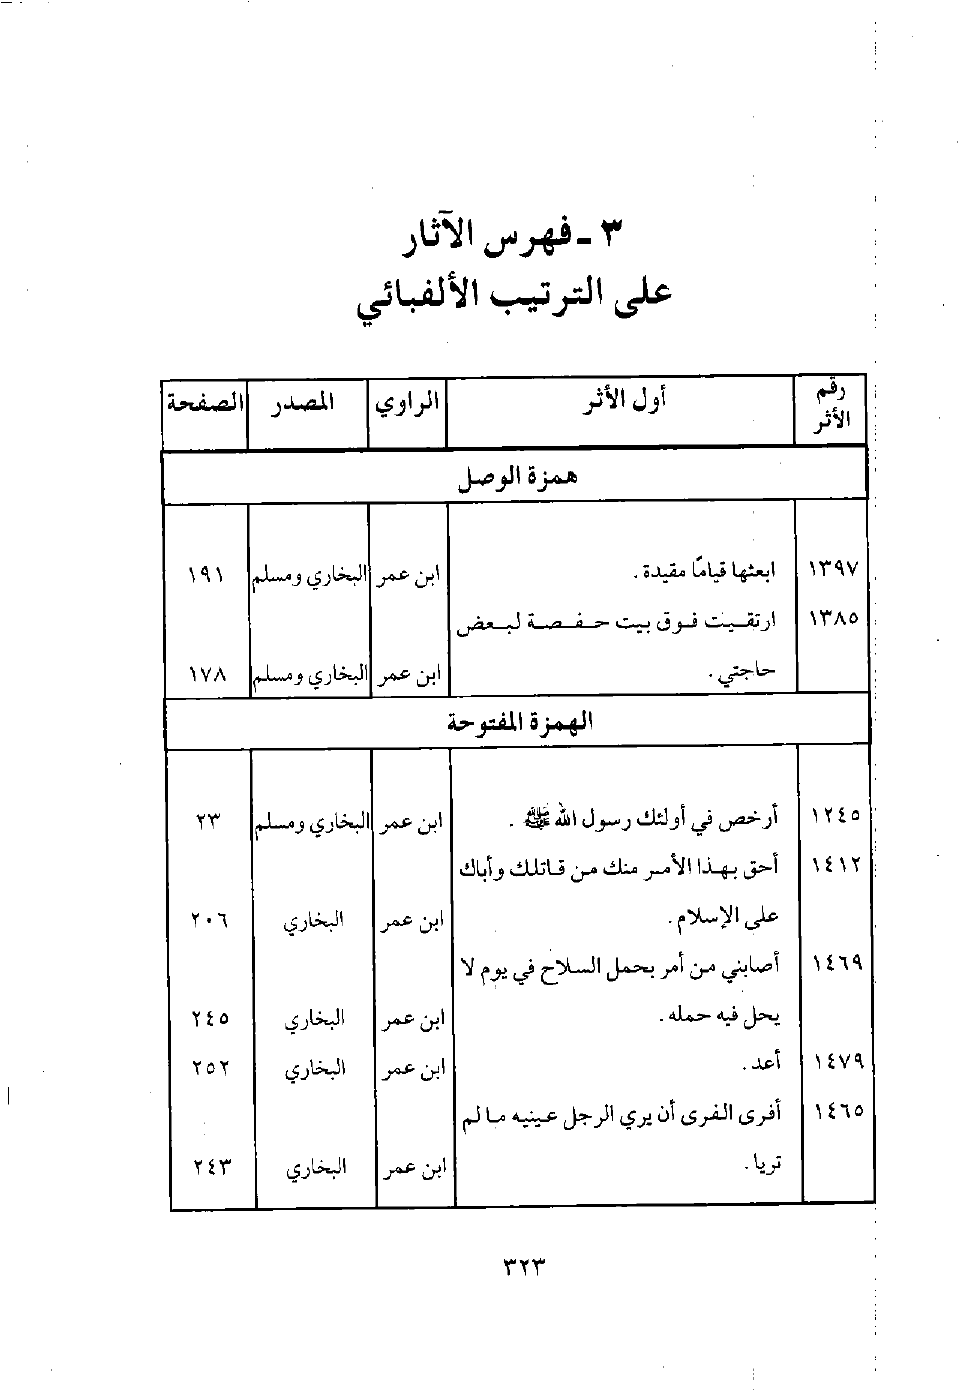 ٣ ـ فهرس الآثار
على الترتيب الألفبائي
رقم الأثر أول الأثر الراوي المصدر الصفحة
همزة الوصل
١٣٩٧ ابعثها قيامًا مقيدة . ابن عمر البخاري ومسلم ١٩١
١٣٨٥ ارتقيت فوق بيت حفصة لبعض
حاجتي . ابن عمر البخاري ومسلم ١٧٨
الهمزة المفتوحة
١٢٤٥ أرخص في أولئك رسول الله ﷺ . ابن عمر البخاري ومسلم ٢٣
١٤١٢ أحق بهذا الأمر منك من قاتلك وأباك
على الإسلام . ابن عمر البخاري ٢٠٦
١٤٦٩ أصابني من أمر بحمل السلاح في يوم لا
يحل فيه حمله . ابن عمر البخاري ٢٤٥
١٤٧٩ أعد . ابن عمر البخاري ٢٥٢
١٤٦٥ أفرى الفرى أن يري الرجل عينيه ما لم
تريا . ابن عمر البخاري ٢٤٣
٣٢٣